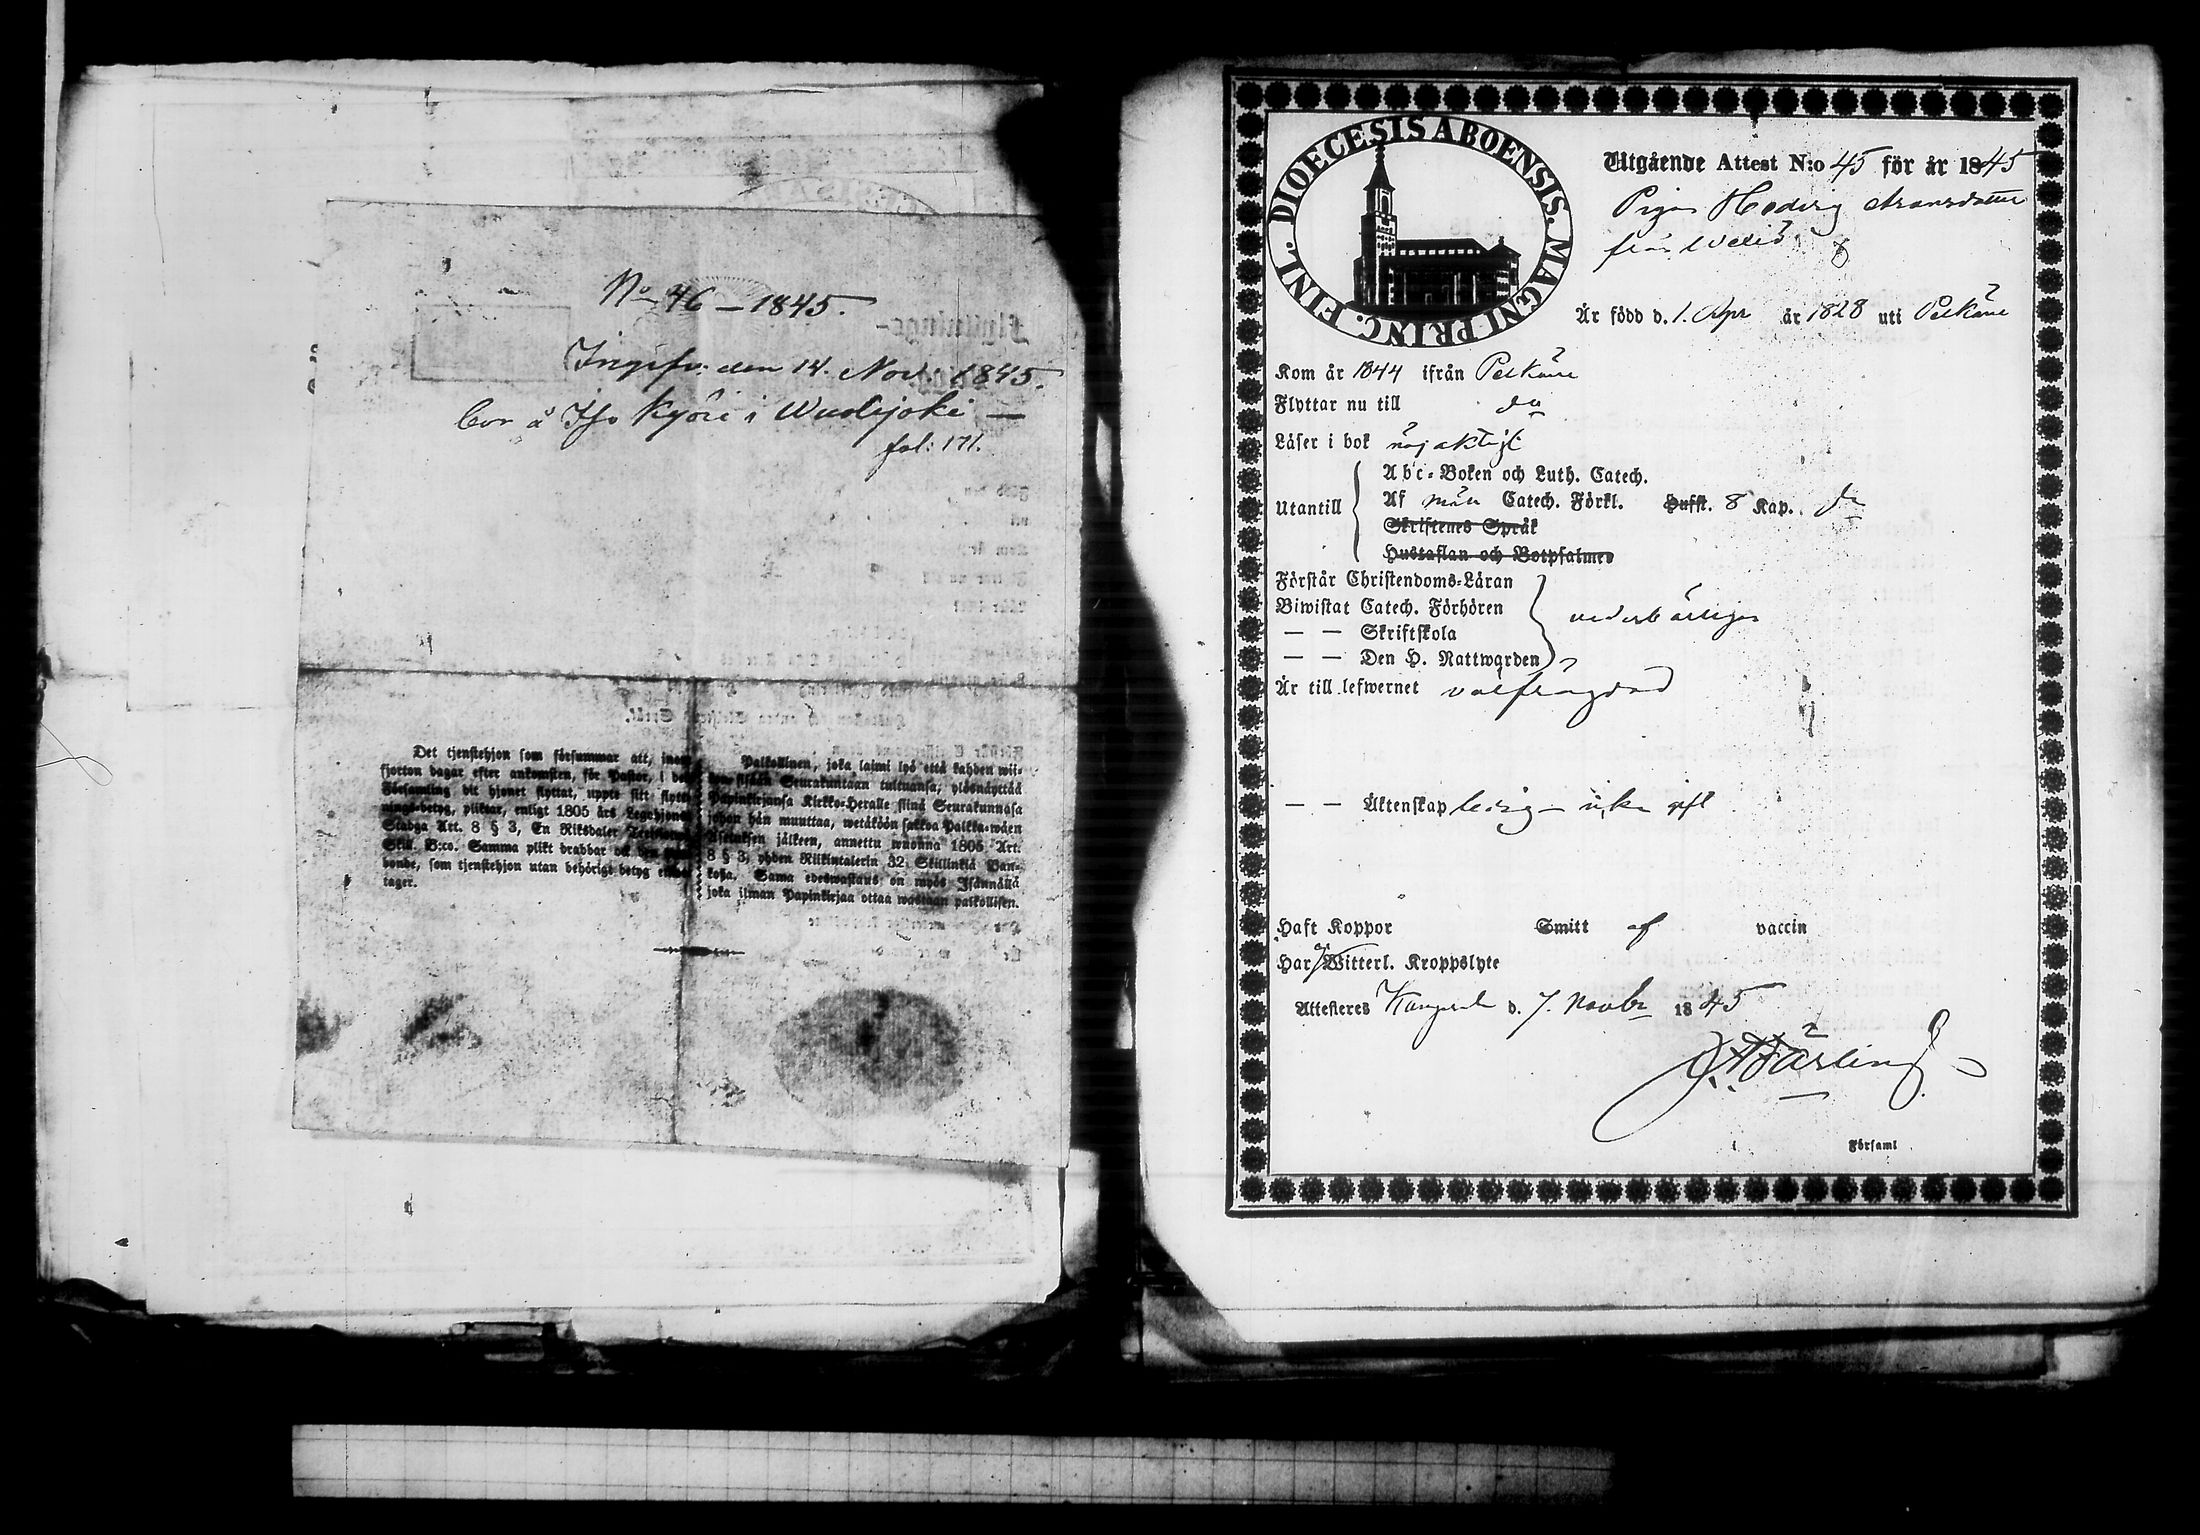 No 46 – 1845.
Ingifv. den 14. Nov. 1845.
bor å Iso Kyöri i Wuolijoki —
fol: 171.
Det tjenstehjon som försummar att, inom
fjorton dagar efter ankomsten, för Pastor, i den
Församling dit hjonet flyttat, uppte sitt flytt-
nings-betyg, pliktar, enligt 1805 års Legohjons
Stadga Art. 8 § 3, En Riksdaler
Skill. B:co. Samma plikt drabbar ock den
bonde, som tjenstehjon utan behörigt betyg emot-
tager.
Palkollinen, joka laimi lyö että kahden wii-
kon sisään Seurakuntaan tultuansa, ylösnäyttää
Papinkirjansa Kirkko-Heralle siinä Seurakunnasa
johon hän muuttaa, wetäköön sakkoa Palkka-wäen
Asetuksen jälkeen, annettu wuonna 1805 Art.
8 § 3, yhden Riikintalerin 32 Skillinkiä Ban-
kosa. Sama edeswastaus on myös Isännällä
joka ilman Papinkirjaa ottaa wastaan palkollisen.
FINL. DIOECESIS ABOENSIS. MAGNI PRINC.
Utgående Attest N:o 45 för år 1845
Pigan Hedvig
från
Är född d. 1. Apr år 1828 uti Pelkäne
Kom år 1844 ifrån Pelkäne
Flyttar nu till do
Läser i bok nöjaktigt
Abc-Boken och Luth. Catech.
Utantill Af Catech. Förkl. Hufst. 8 Kap.
Skriftenes Språk
Hustaflan och Botpsalmer
Förstår Christendoms-Läran
Biwistat Catech. Förhören vederbörligen
— — Skriftskola
— — Den H. Nattwarden
Är till lefwernet välfrägdad
— — Äktenskap ledig – icke gift
Haft Koppor Smitt af vaccin
Har ej Witterl. Kroppslyte
Attesteres Kangasala d. 7. Novbr 1845
i Församl